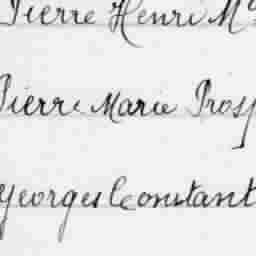 Pierre Henri M
Pierre Marie Prosp
Georges Constant